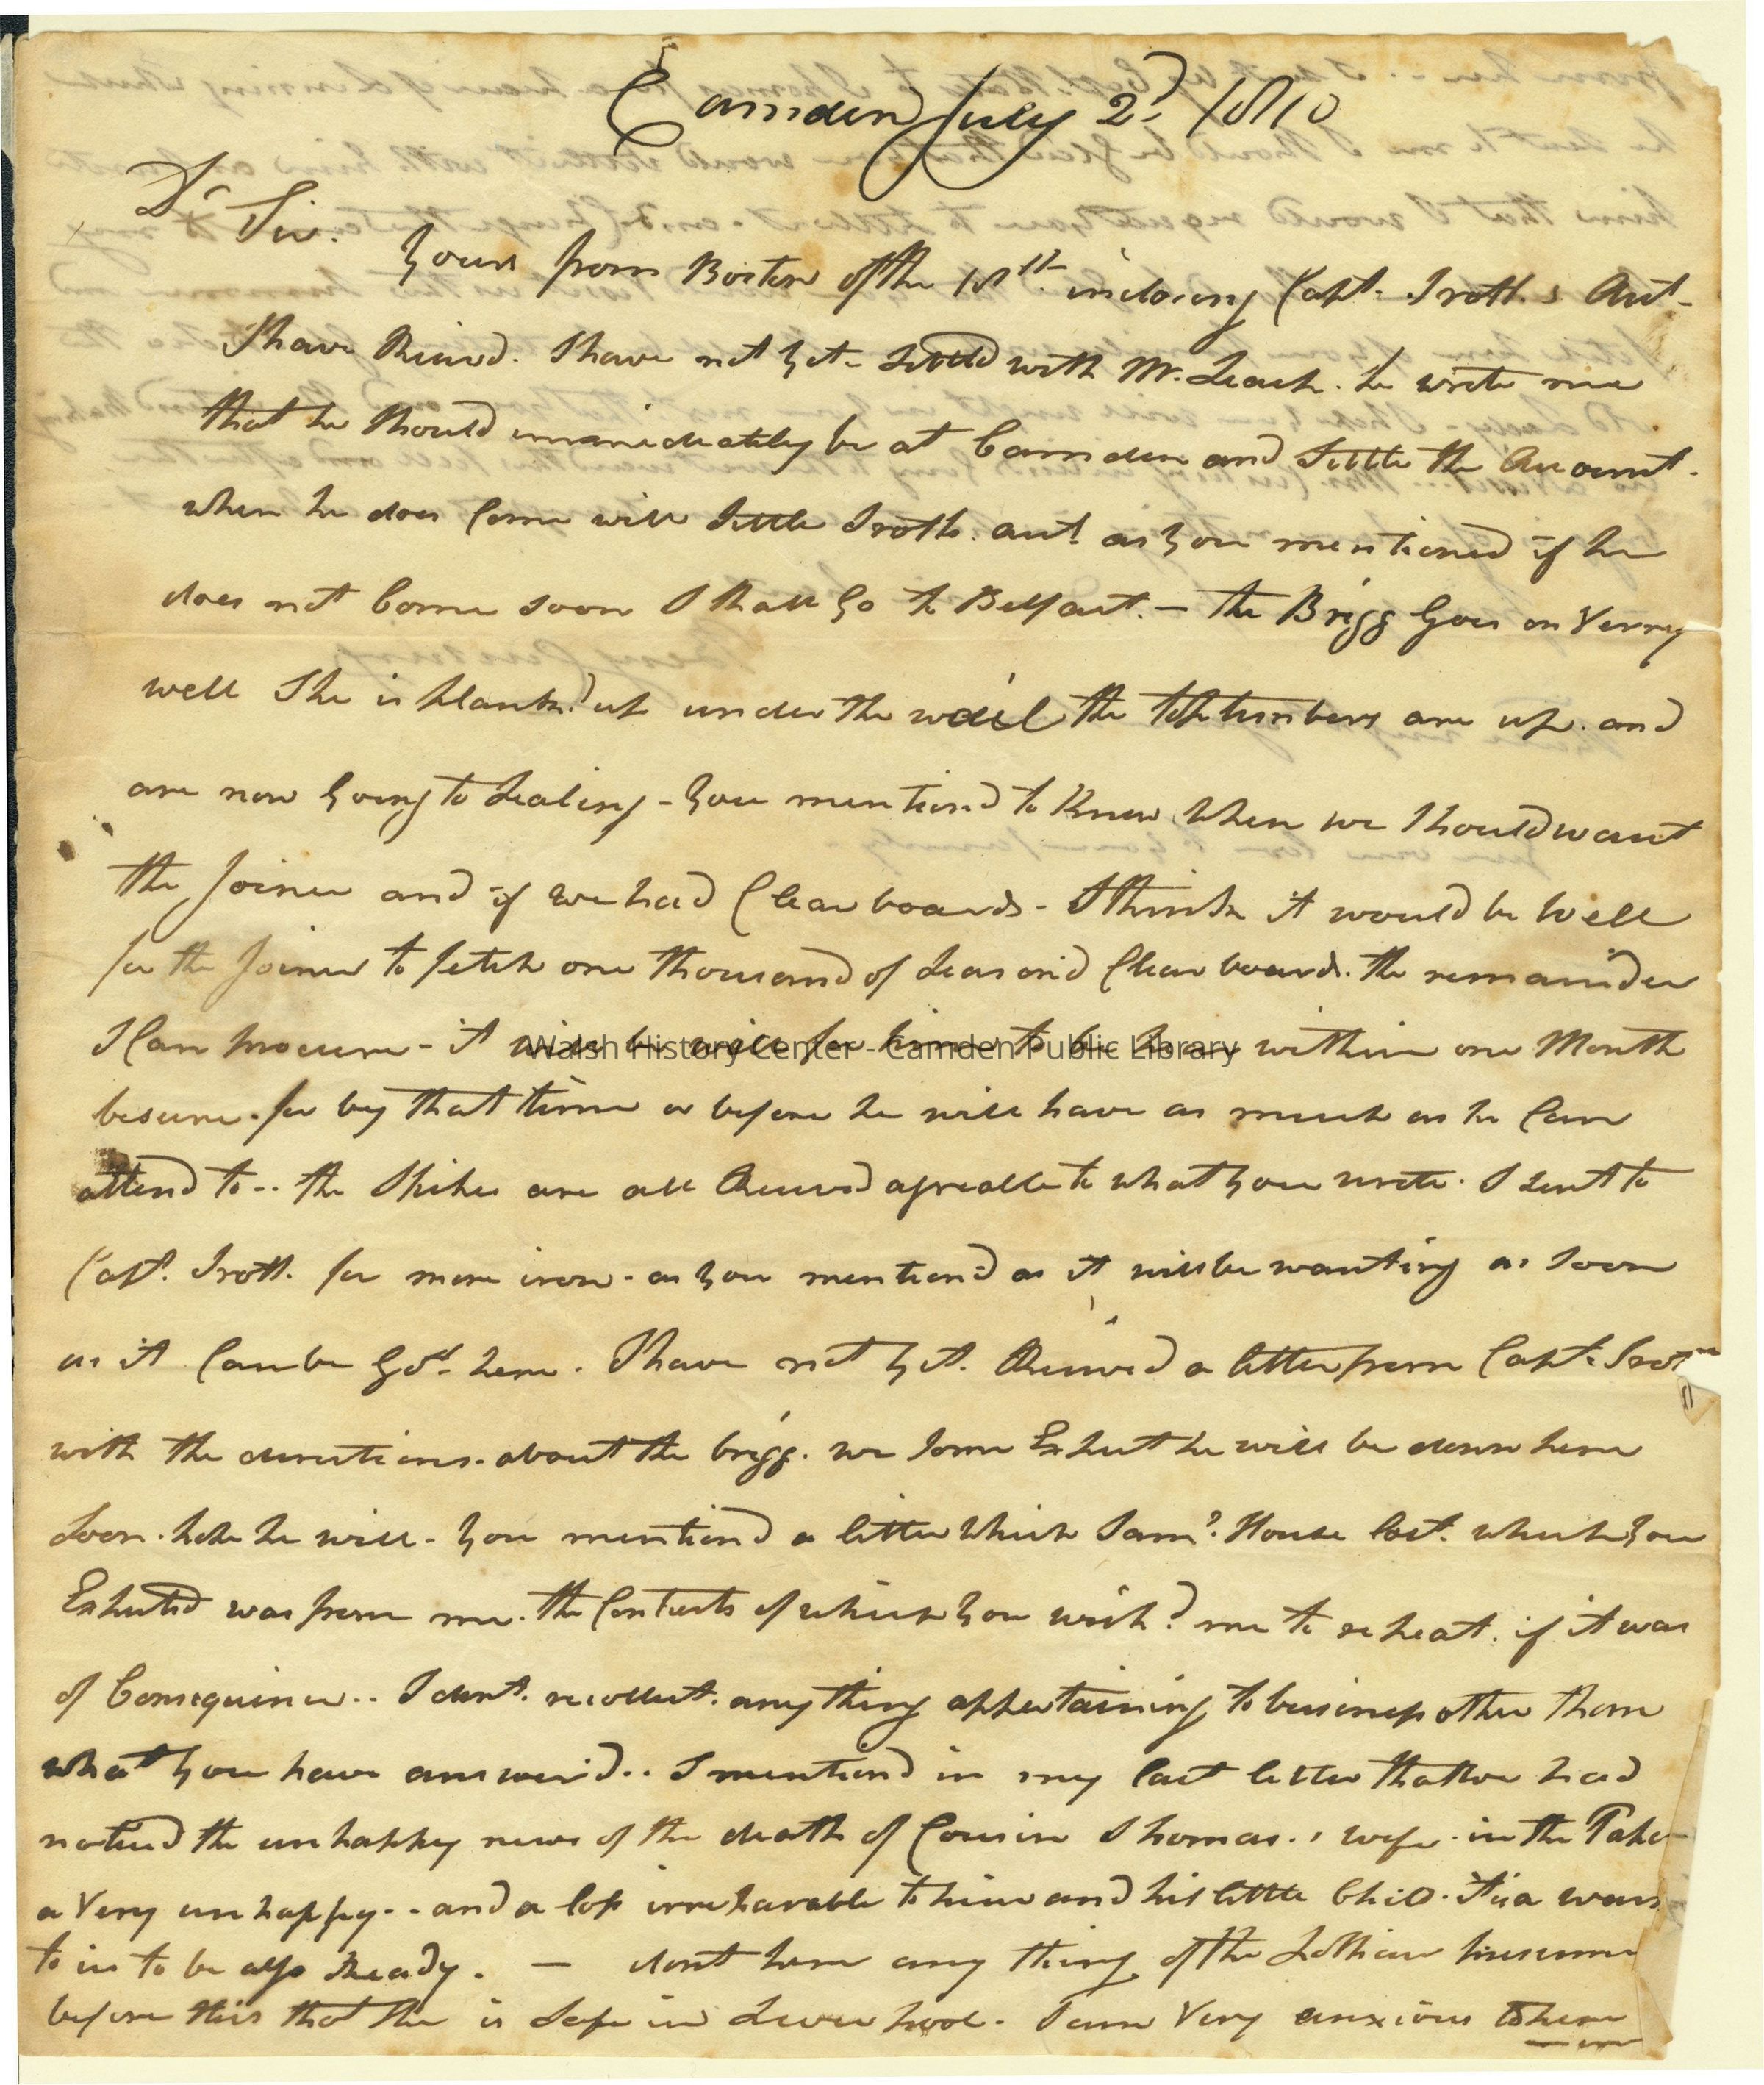 Camden July 2d 1810
Dr Sir.
Yours from Boston of the 18th inclosing Capt. Trott.s Aut.
I have Recivd. I have not yet Settld with Mr. Leach. he write me
that he Should immediately be at Camden and Settle the Account.
when he does Come will Settle Trotts. aut. as you mentioned if he
does not Come soon I Shall Go to Belfast. — the Brigg Goes on Verry
well She is plankd up under the wail the toptimbers are up. and
are now going to Sealing - you mentiond to Know When we Should want
the Joiner and if we had Clear boards - I think it would be well
for the Joiner to fetch one thousand of Seasond Clear boards. the remainder
I Can procure - it will be well for him to be here within one Month
Walsh History Center - Camden Public Library
besure. for by that time or before he will have as much as he Can
attend to.. the Spikes are all Recived agreable to what you wrote. I sent to
Capt. Trott. for more iron - as you mentiond as it will be wanting as Soon
as it Can be Got here. I have not yet. Recived a letter from Capt.
with the directions. about the brigg. we Some Expect he will be down here
Soon. hope he will - you mentiond a letter which Saml. House lost. which you
Expected was from me. the Contents of which you wish'd me to repeat. if it was
of Consequince.. I dont. recollect. anything appertaining to business other than
what you have answerd.. I mentiond in my last letter that we had
noticed the unhappy news of the death of Cousin Thomas.s wife. in the Paper
a Very unhappy.. and a loss irreparable to him and his little Child. tis a warn
to us to be also Ready. — dont hear any thing of the Lothair presume
before this that She is Safe in Liverpool. I am Very anxious to hear